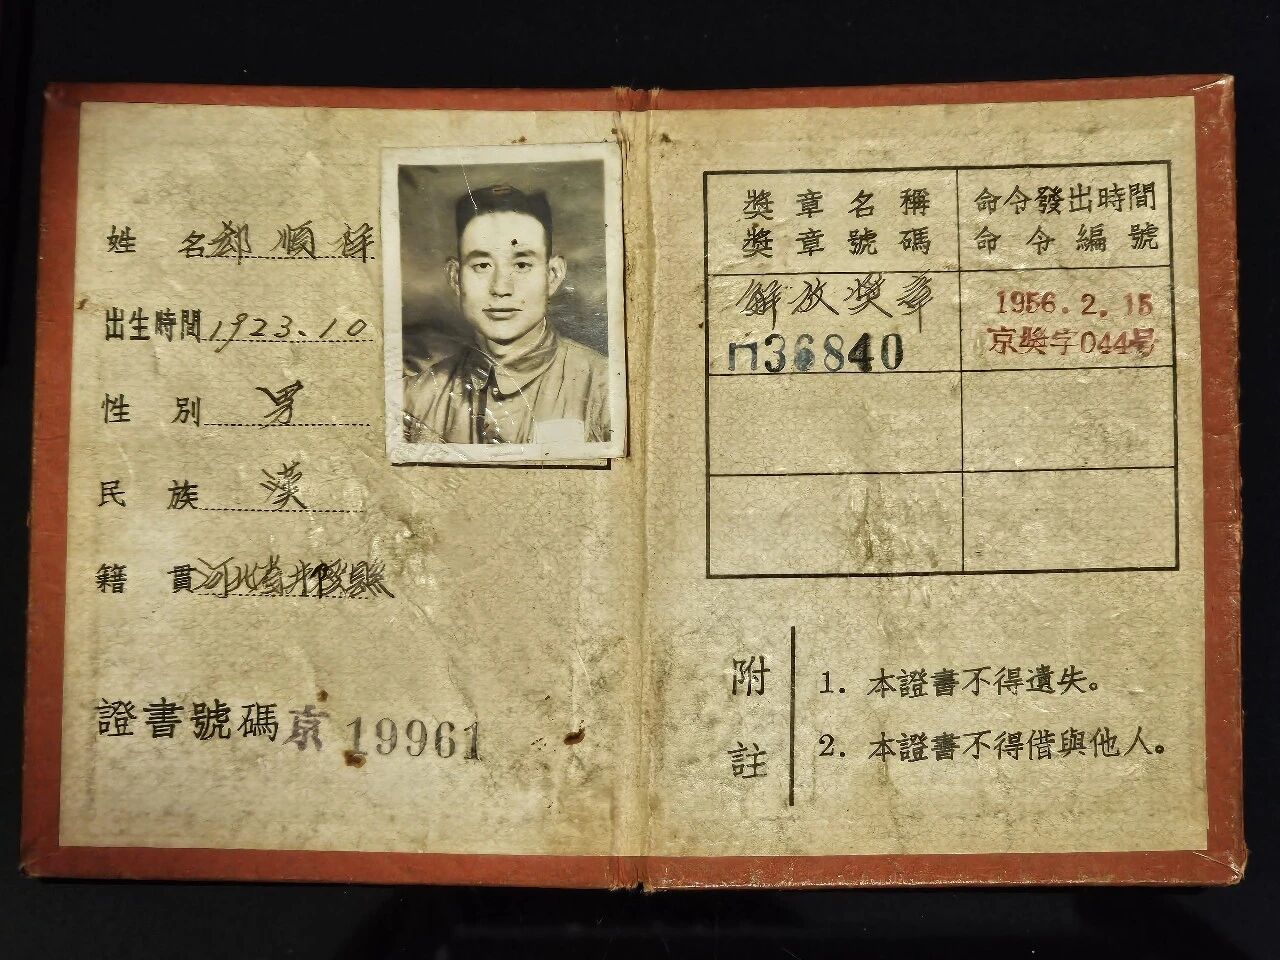 姓 名 郝順祥
出生時間 1923.10
性 別 男
民 族 漢
籍 貫 河北省井陘縣
證書號碼 京 19961
獎章名稱 命令發出時間
獎章號碼 命令編號
解放獎章 1956.2.15
36840 京獎字044号
附註
1. 本證書不得遺失。
2. 本證書不得借與他人。